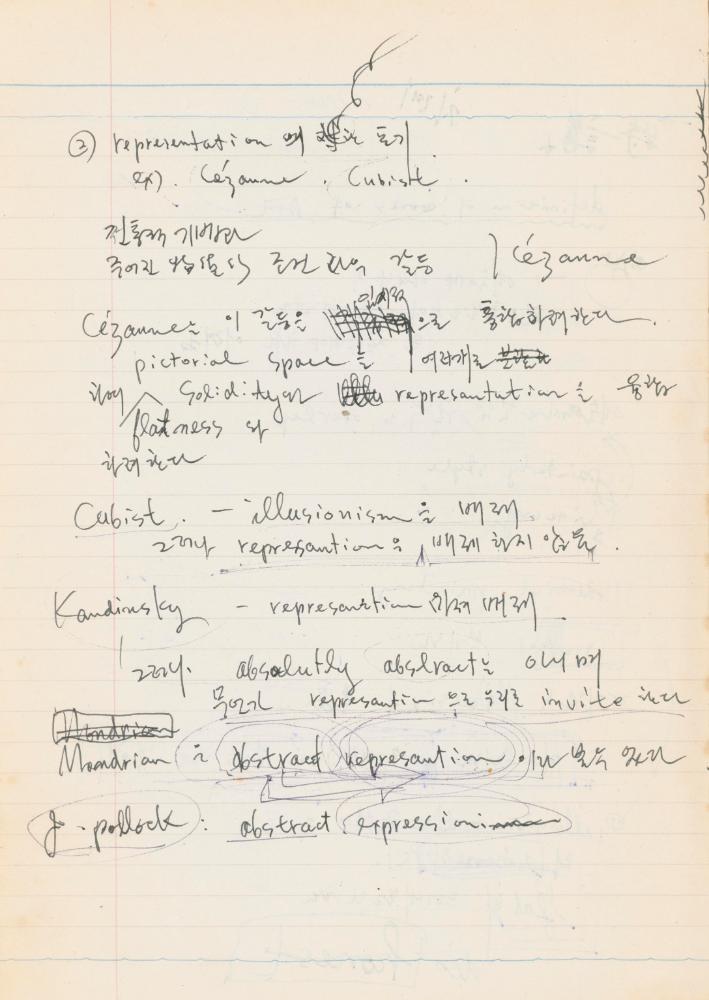 ② representation 의 포기
ex). Cézanne. Cubist.
전통적 기법과
주어진 조건 과의 갈등 Cézanne
Cézanne는 이 갈등을 으로 통합하려 한다.
pictorial space를 여러개로
하여 solidity와 representution을 융합
flatness 와
하려 한다
Cubist. — illusionism을 배제
그러나 represantion은 배제 하지 않음.
Kandinsky — represantion 완전 배제
그러나. absolutly abslract는 아니며
무언가 represantion 으로 우리를 invite 한다
Mondrian
Moondrian 는 abstract represantion 이라 볼수 있다
J. pollock : abstract expression